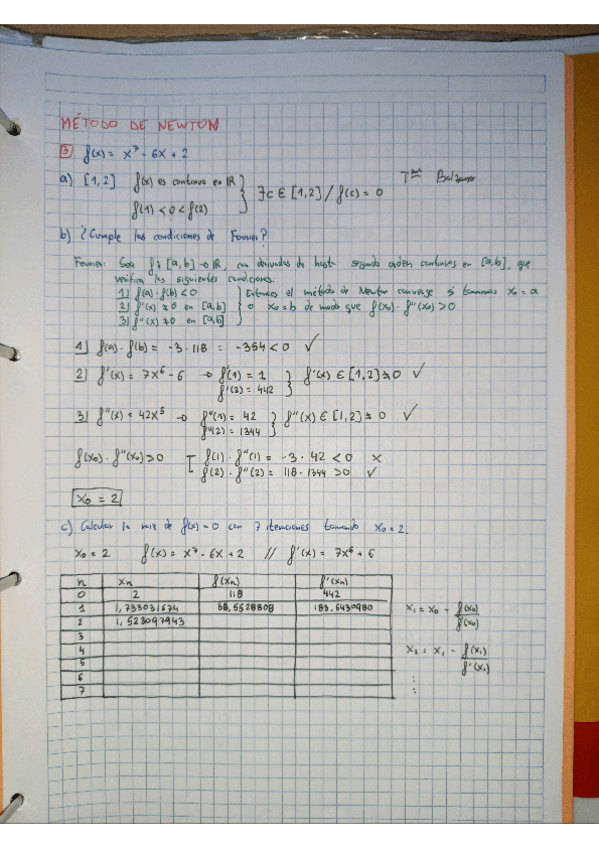 MÉTODO DE NEWTON
3 f(x) = x⁷ - 6x + 2
a) [1,2] f(x) es continua en ℝ } ∃c ∈ [1,2] / f(c) = 0 Bolzano
f(1) < 0 < f(2)
b) ¿Cumple las condiciones de Fourier?
Fourier: Sea f: [a,b] → ℝ, con derivadas de hasta segundo orden continuas en [a,b], que
verifica las siguientes condiciones:
1) f(a)·f(b) < 0 } Entonces el método de Newton converge si tomamos x₀ = a
2) f'(x) ≠ 0 en [a,b] o x₀ = b de modo que f(x₀)·f''(x₀) > 0
3) f''(x) ≠ 0 en [a,b]
1) f(a)·f(b) = -3·118 = -354 < 0 ✓
2) f'(x) = 7x⁶ - 6 → f'(1) = 1 } f'(x) ∈ [1,2] ≠ 0 ✓
f'(2) = 442
3) f''(x) = 42x⁵ → f''(1) = 42 } f''(x) ∈ [1,2] ≠ 0 ✓
f''(2) = 1344
f(x₀)·f''(x₀) > 0 [ f(1)·f''(1) = -3·42 < 0 ×
f(2)·f''(2) = 118·1344 > 0 ✓
x₀ = 2
c) Calcular la raíz de f(x) = 0 con 7 iteraciones tomando x₀ = 2.
x₀ = 2 f(x) = x⁷ - 6x + 2 // f'(x) = 7x⁶ + 6
n xₙ f(xₙ) f'(xₙ)
0 2 118 442
1 1,733031674 38,5528808 183,6430980
2 1,523097943
3
4
5
6
7
x₁ = x₀ - f(x₀)/f'(x₀)
x₂ = x₁ - f(x₁)/f'(x₁)
⋮ ⋮